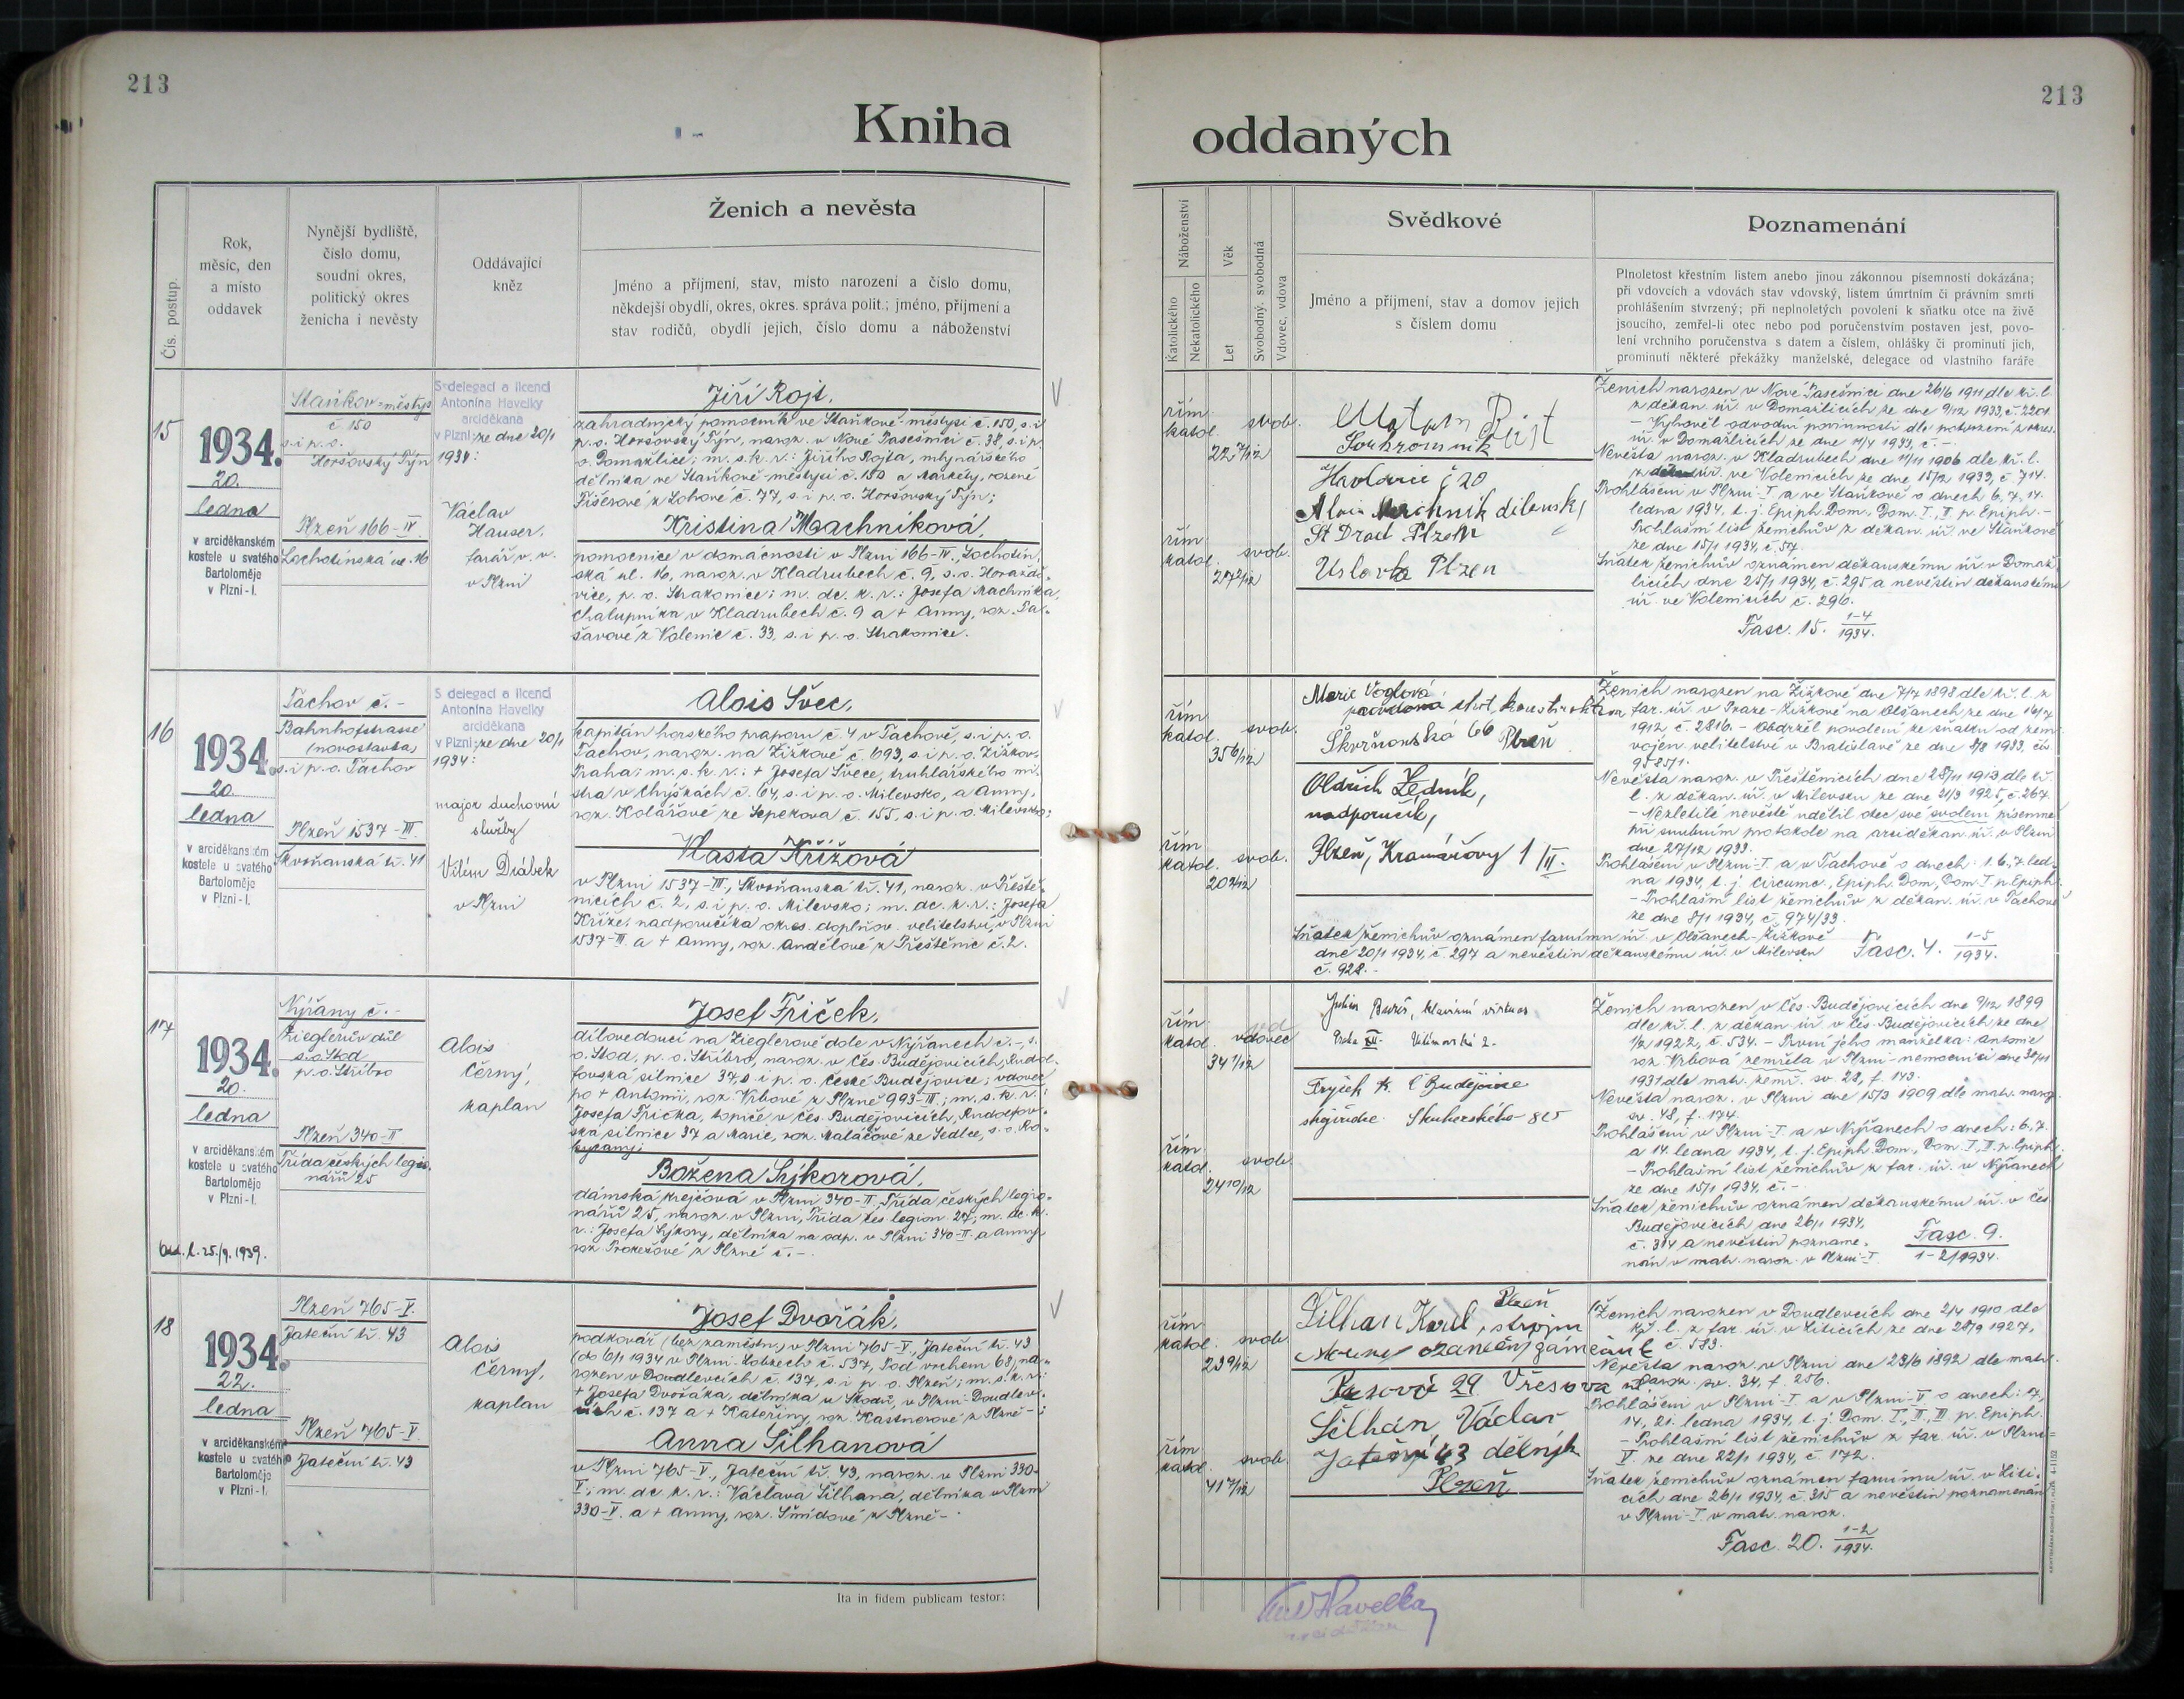 213
213
Kniha
oddaných
Čís. postup.
Rok,
měsíc, den
a místo
oddavek
Nynější bydliště,
číslo domu,
soudní okres,
politický okres
ženicha i nevěsty
Oddávající
kněz
Ženich a nevěsta
Jméno a příjmení, stav, místo narození a číslo domu,
někdejší obydlí, okres, okres. správa polit.; jméno, příjmení a
stav rodičů, obydlí jejich, číslo domu a náboženství
Náboženství
Katolického
Nekatolického
Věk
Let
Svobodný, svobodná
Vdovec, vdova
Svědkové
Jméno a příjmení, stav a domov jejich
s číslem domu
Poznamenání
Plnoletost křestním listem anebo jinou zákonnou písemností dokázána;
při vdovcích a vdovách stav vdovský, listem úmrtním či právním smrti
prohlášením stvrzený; při neplnoletých povolení k sňatku otce na živě
jsoucího, zemřel-li otec nebo pod poručenstvím postaven jest, povo-
lení vrchního poručenstva s datem a číslem, ohlášky či prominutí jich,
prominutí některé překážky manželské, delegace od vlastního faráře
15
1934.
20.
ledna
v arciděkanském
kostele u svatého
Bartoloměje
v Plzni-I.
Staňkov-městys
č. 150
s. i p. o.
Horšovský Týn
Plzeň 166-IV
Lochotínská ul. 16
S delegací a licencí
Antonína Havelky
arciděkana
v Plzni ze dne 20/1
1934:
Václav
Hauser,
farář v. v.
v Plzni
Jiří Rojt,
zahradnický pomocník ve Staňkově-městysi č. 150, s. i
p. o. Horšovský Týn, naroz. v Nové Pasečnici č. 38, s. i p.
o. Domažlice; m. s. k. r.: Jiřího Rojta, mlynářského
dělníka ve Staňkově-městysi č. 150 a Markéty, rozené
Fišerové z Lohové č. 77, s. i p. o. Horšovský Týn;
Kristina Machníková,
pomocnice v domácnosti v Plzni 166-IV., Lochotín-
ská ul. 16, naroz. v Kladrubech č. 9, s. o. Horažďo-
vice, p. o. Strakonice; m. dc. k. r.: Josefa Machníka,
chalupníka v Kladrubech č. 9 a + Anny, roz. Pa-
šavové z Volenic č. 33, s. i p. o. Strakonice.
řím.
katol.
svob.
22 7/12
řím.
katol.
svob.
27 2/12
Soukromník
Havlovic č 20
Alois Machnik dilensky
St Drad Plzeň
Plzen
Ženich narozen v Nové Pasečnici dne 26/6 1911 dle kř. l.
z děkan. úř. v Domažlicích ze dne 9/12 1933, č. 2201.
- Vyhověl odvodní povinnosti dle potvrzení z okres.
úř. v Domažlicích ze dne 11/4 1933, č. -.
Nevěsta naroz. v Kladrubech dne 11/11 1906 dle kř. l.
úř. ve Volenicích ze dne 15/12 1933, č. 714.
Prohlášeni v Plzni-I a ve Staňkově o dnech 6., 7., 14.
ledna 1934, t. j. Epiph. Dom., Dom. I., II p. Epiph. -
- Prohlašní list ženichův z děkan. úř. ve Staňkově
ze dne 15/1 1934, č. 57.
Sňatek ženichův oznámen děkanskému úř. v Domaž-
licích dne 25/1 1934, č. 295 a nevěstin děkanskému
úř. ve Volenicích č. 296.
Fasc. 15. 1-4/1934.
16
1934.
20
ledna
v arciděkanském
kostele u svatého
Bartoloměje
v Plzni-I.
Tachov č. -
Bahnhofstrasse
(novostavba)
s. i p. o. Tachov
Plzeň 1537-III
Skvrňanská tř. 41
S delegací a licencí
Antonína Havelky
arciděkana
v Plzni: ze dne 20/1
1934:
major duchovní
služby
Vilém Drábek
v Plzni
Alois Švec,
kapitán horského praporu č. 4 v Tachově, s. i p. o.
Tachov, naroz. na Žižkově č. 693, s. i p. o. Žižkov,
Praha; m. s. k. r.: + Josefa Švece, truhlářského mi-
stra v Chyškách č. 64, s. i p. o. Milevsko, a Anny,
roz. Kolářové ze Sepekova č. 155, s. i p. o. Milevsko;
Vlasta Křížová
v Plzni 1537-III, Skvrňanská tř. 41, naroz. v Přeště-
nicích č. 2, s. i p. o. Milevsko; m. dc. k. r.: Josefa
Kříže, nadporučíka okres. doplňov. velitelství, v Plzni
1537-III a + Anny, roz. Andělové z Přeštěnic č. 2.
řím.
katol.
svob.
35 6/12
řím.
katol.
svob.
20 2/12
Marie Voglová
Skvrňanská 66 Plzeň
Oldřich Ledník,
nadporučík,
Plzeň, Kramářovy 1/III.
Ženich narozen na Žižkově dne 7/7 1898 dle kř. l. z
far. úř. v Praze-Žižkově na Olšanech ze dne 16/7
1912 č. 2816. - Obdržel povolení ke sňatku od zem.
vojen. velitelství v Bratislavě ze dne 2/8 1933, čís
9585/1.
Nevěsta naroz. v Přeštěnicích dne 28/11 1913 dle kř.
l. z děkan. úř. v Milevsku ze dne 21/3 1925, č. 267.
- Nezletilé nevěstě udělil otec své svolení písemně
při snubním protokole na arciděkan. úř. v Plzni
dne 27/12 1933.
Prohlášeni v Plzni-I a v Tachově o dnech: 1., 6., 7. led-
na 1934, t. j. Circumc., Epiph. Dom., Dom. I. p. Epiph.
- Prohlašní list ženichův z děkan. úř. v Tachově
ze dne 8/1 1934, č. 974/33.
Sňatek ženichův oznámen farnímu úř. v Olšanech-Žižkově
dne 20/1 1934, č. 297 a nevěstin děkanskému úř. v Milevsku
č. 928. -
Fasc. 4. 1-5/1934.
17
1934.
20.
ledna
v arciděkanském
kostele u svatého
Bartoloměje
v Plzni-I.
Odd. l. 25./9. 1939.
Nýřany č. -
Zieglerův důl
s. o. Stod
p. o. Stříbro
Plzeň 340-II
Třída českých legio-
nářů 25
Alois
Černý,
kaplan
Josef Fřiček,
dílovedoucí na Zieglerově dole v Nýřanech č. -, s.
o. Stod, p. o. Stříbro, naroz. v Čes. Budějovicích, Rudol-
fovská silnice 37, s. i p. o. České Budějovice; vdovec
po + Antonii, roz. Vrbové z Plzně 993-III; m. s. k. r.:
Josefa Fřička, topiče v Čes. Budějovicích, Rudolfov-
ská silnice 37 a Marie, roz. Maláčové ze Sedlce, s. o. Ro-
kycany;
Božena Sýkorová,
dámská krejčová v Plzni 340-II, Třída českých legio-
nářů 25, naroz. v Plzni, Třída čes. legion. 27; m. dc. k.
r.: Josefa Sýkory, dělníka na odp. v Plzni 340-II. a Anny,
roz. Prokešové z Plzně č. -.
řím.
katol.
vdovec
34 1/12
řím.
katol.
svob.
24 10/12
klavírní virtuos
Praha XII.
Č Budějovice
Ženich narozen v Čes. Budějovicích dne 9/12 1899
dle kř. l. z děkan. úř. v Čes. Budějovicích ze dne
1922, č. 534. - První jeho manželka: Antonie
roz. Vrbová zemřela v Plzni-nemocnici dne 30/11
1931 dle matr. zemř. sv. 28, f. 143.
Nevěsta naroz. v Plzni dne 15/3 1909 dle matr. naroz.
sv. 48, f. 174.
Prohlášeni v Plzni-I a v Nýřanech o dnech: 6., 7.
a 14. ledna 1934, t. j. Epiph. Dom., Dom. I., II. p. Epiph.
- Prohlašní list ženichův z far. úř. v Nýřanech
ze dne 15/1 1934, č. -
Sňatek ženichův oznámen děkanskému úř. v Čes.
Budějovicích dne 26/1 1934,
č. 314 a nevěstin pozname-
nán v matr. naroz. v Plzni-I.
Fasc. 9.
1-2/1934.
18
1934.
22.
ledna
v arciděkanském
kostele u svatého
Bartoloměje
v Plzni-I.
Plzeň 765-V.
Jateční tř. 43
Plzeň 765-V.
Jateční tř. 43
Alois
Černý,
kaplan
Josef Dvořák,
podkovář (bez zaměstn.) v Plzni 765-V, Jateční tř. 43
(do 6/1 1934 v Plzni-Lobzech č. 537, Pod vrchem 68), na-
rozen v Doudlevcích č. 137, s. i p. o. Plzeň; m. s. k. r.:
+ Josefa Dvořáka, dělníka u Škodů, v Plzni-Doudlev-
cích č. 137 a + Kateřiny, roz. Kastnerové z Plzně - ;
Anna Šilhanová
v Plzni 765-V., Jateční tř. 43, naroz. v Plzni 330-
V; m. dc. k. r.: Václava Šilhana, dělníka v Plzni
330-V. a + Anny, roz. Šmídové z Plzně - .
řím.
katol.
svob.
23 9/12
řím.
katol.
svob.
41 7/12
Plzeň
Šilhan Karel, strojní
zámečník
29 Vřesova
Šilhan, Václav
Jateční 43 dělník
Plzeň
Ženich narozen v Doudlevcích dne 2/4 1910 dle
kř. l. z far. úř. v Liticích ze dne 28/9 1927,
č 583.
Nevěsta naroz. v Plzni dne 23/6 1892 dle matr.
naroz. sv. 34, f. 256.
Prohlášeni v Plzni-I a v Plzni-V o dnech: 7.,
14., 21. ledna 1934, t. j. Dom. I., II., III p. Epiph.
- Prohlašní list ženichův z far. úř. v Plzni-
V. ze dne 22/1 1934, č. 172.
Sňatek ženichův oznámen farnímu úř. v Liti-
cích dne 26/1 1934, č. 315 a nevěstin poznamenán
v Plzni-I v matr. naroz.
Fasc. 20. 1-2/1934.
Ita in fidem publicam testor:
Ant Havelka
arciděkan